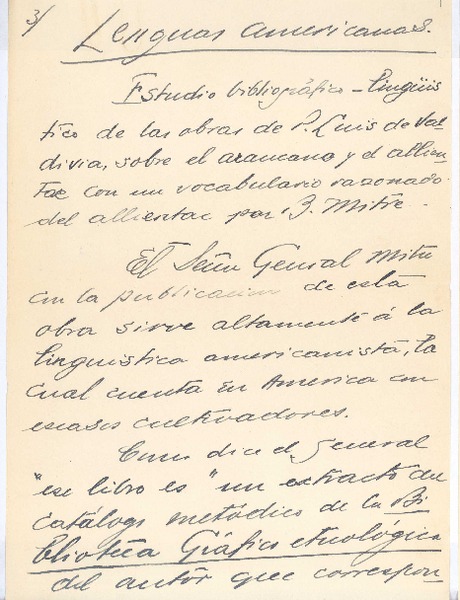 3/
Lenguas americanas.
Estudio bibliográfico-lingüis
tico de las obras de P. Luis de Val-
divia, sobre el araucano y el allien-
tac con un vocabulario razonado
del allientac por B. Mitre.
El Señor General Mitre
con la publicacion de esta
obra sirve altamente á la
linguistica americanista, la
cual cuenta en America con
escasos cultivadores.
Como dice el general
"ese libro es "un extracto del
catálogo metódico de la Bi
blioteca Gráfico etnológica
del autor que correspon-